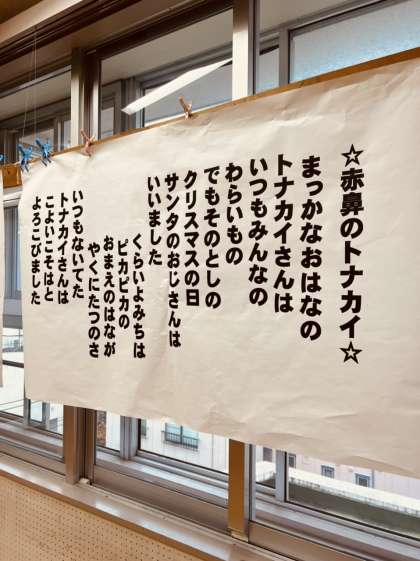 ☆赤鼻のトナカイ☆
まっかなおはなの
トナカイさんは
いつもみんなの
わらいもの
でもそのとしの
クリスマスの日
サンタのおじさんは
いいました
くらいよみちは
ピカピカの
おまえのはなが
やくにたつのさ
いつもないてた
トナカイさんは
こよいこそはと
よろこびました